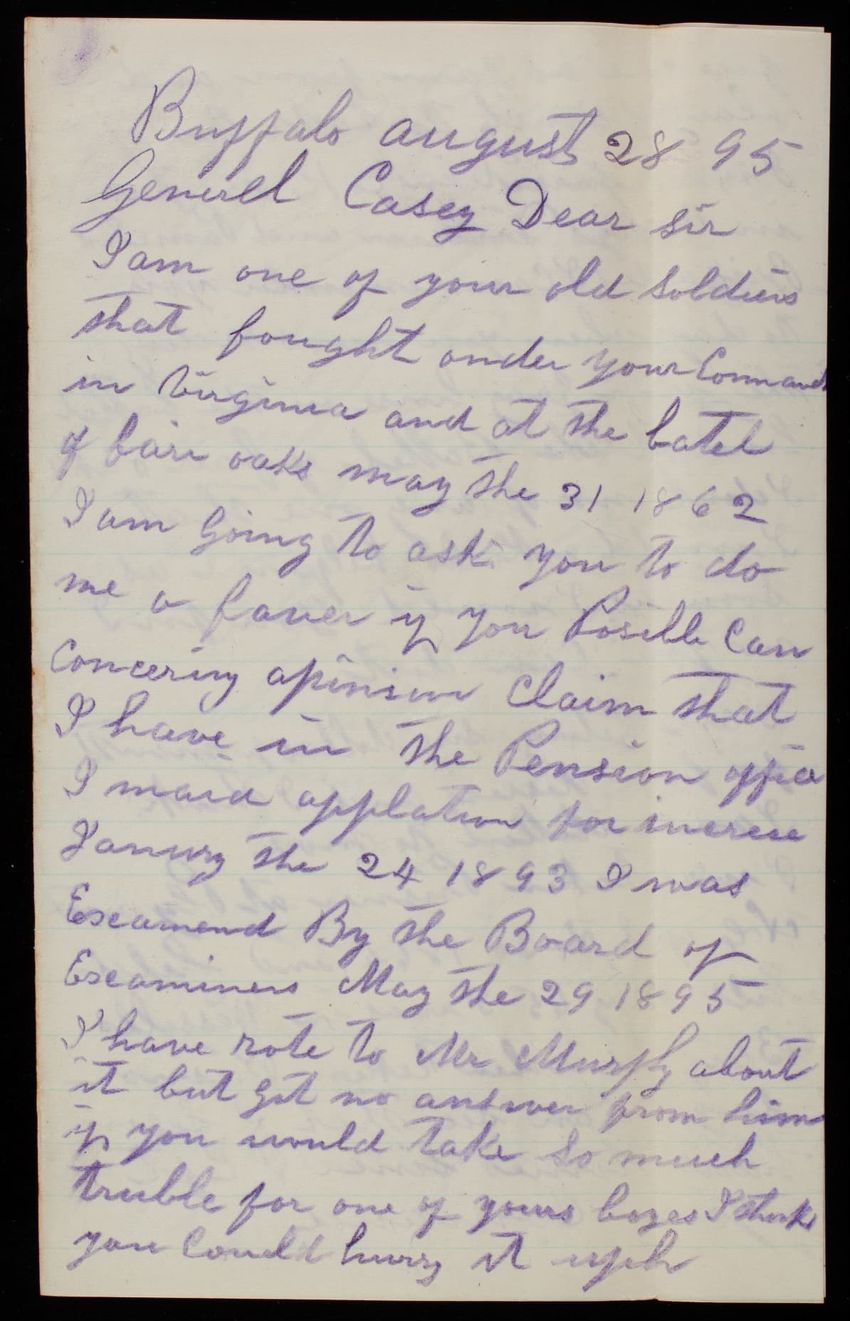 Buffalo august 28 95
Generel Casey Dear sir
I am one of your old soldiers
that fought onder your Command
in Virginia and at the batel
of fair oaks may the 31 1862
I am going to ask you to do
me a faver if you Posible Can
Concering apinsion Claim that
I have in the Pension office
I maid applation for increse
Janury the 24 1893 I was
Excamend By the Board of
Excaminers May the 29 1895
I have rote to Mr Murphy about
it but get no answer from him
if you would take so much
truble for one of yours boyes I think
you Could hurry it uph